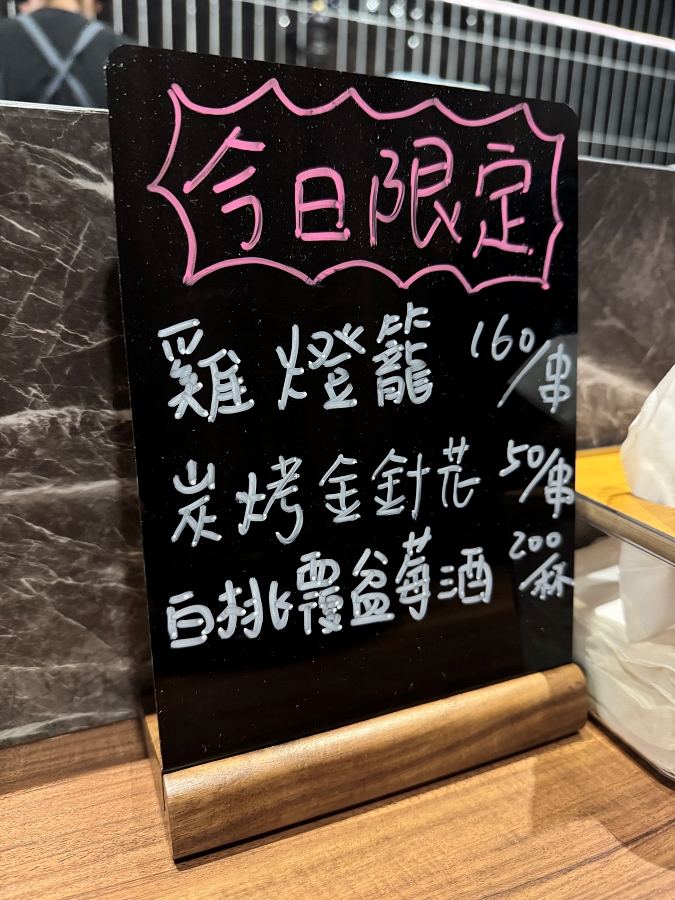 今日限定
雞燈籠 160/串
炭烤金針花 50/串
白桃覆盆莓酒 200/杯